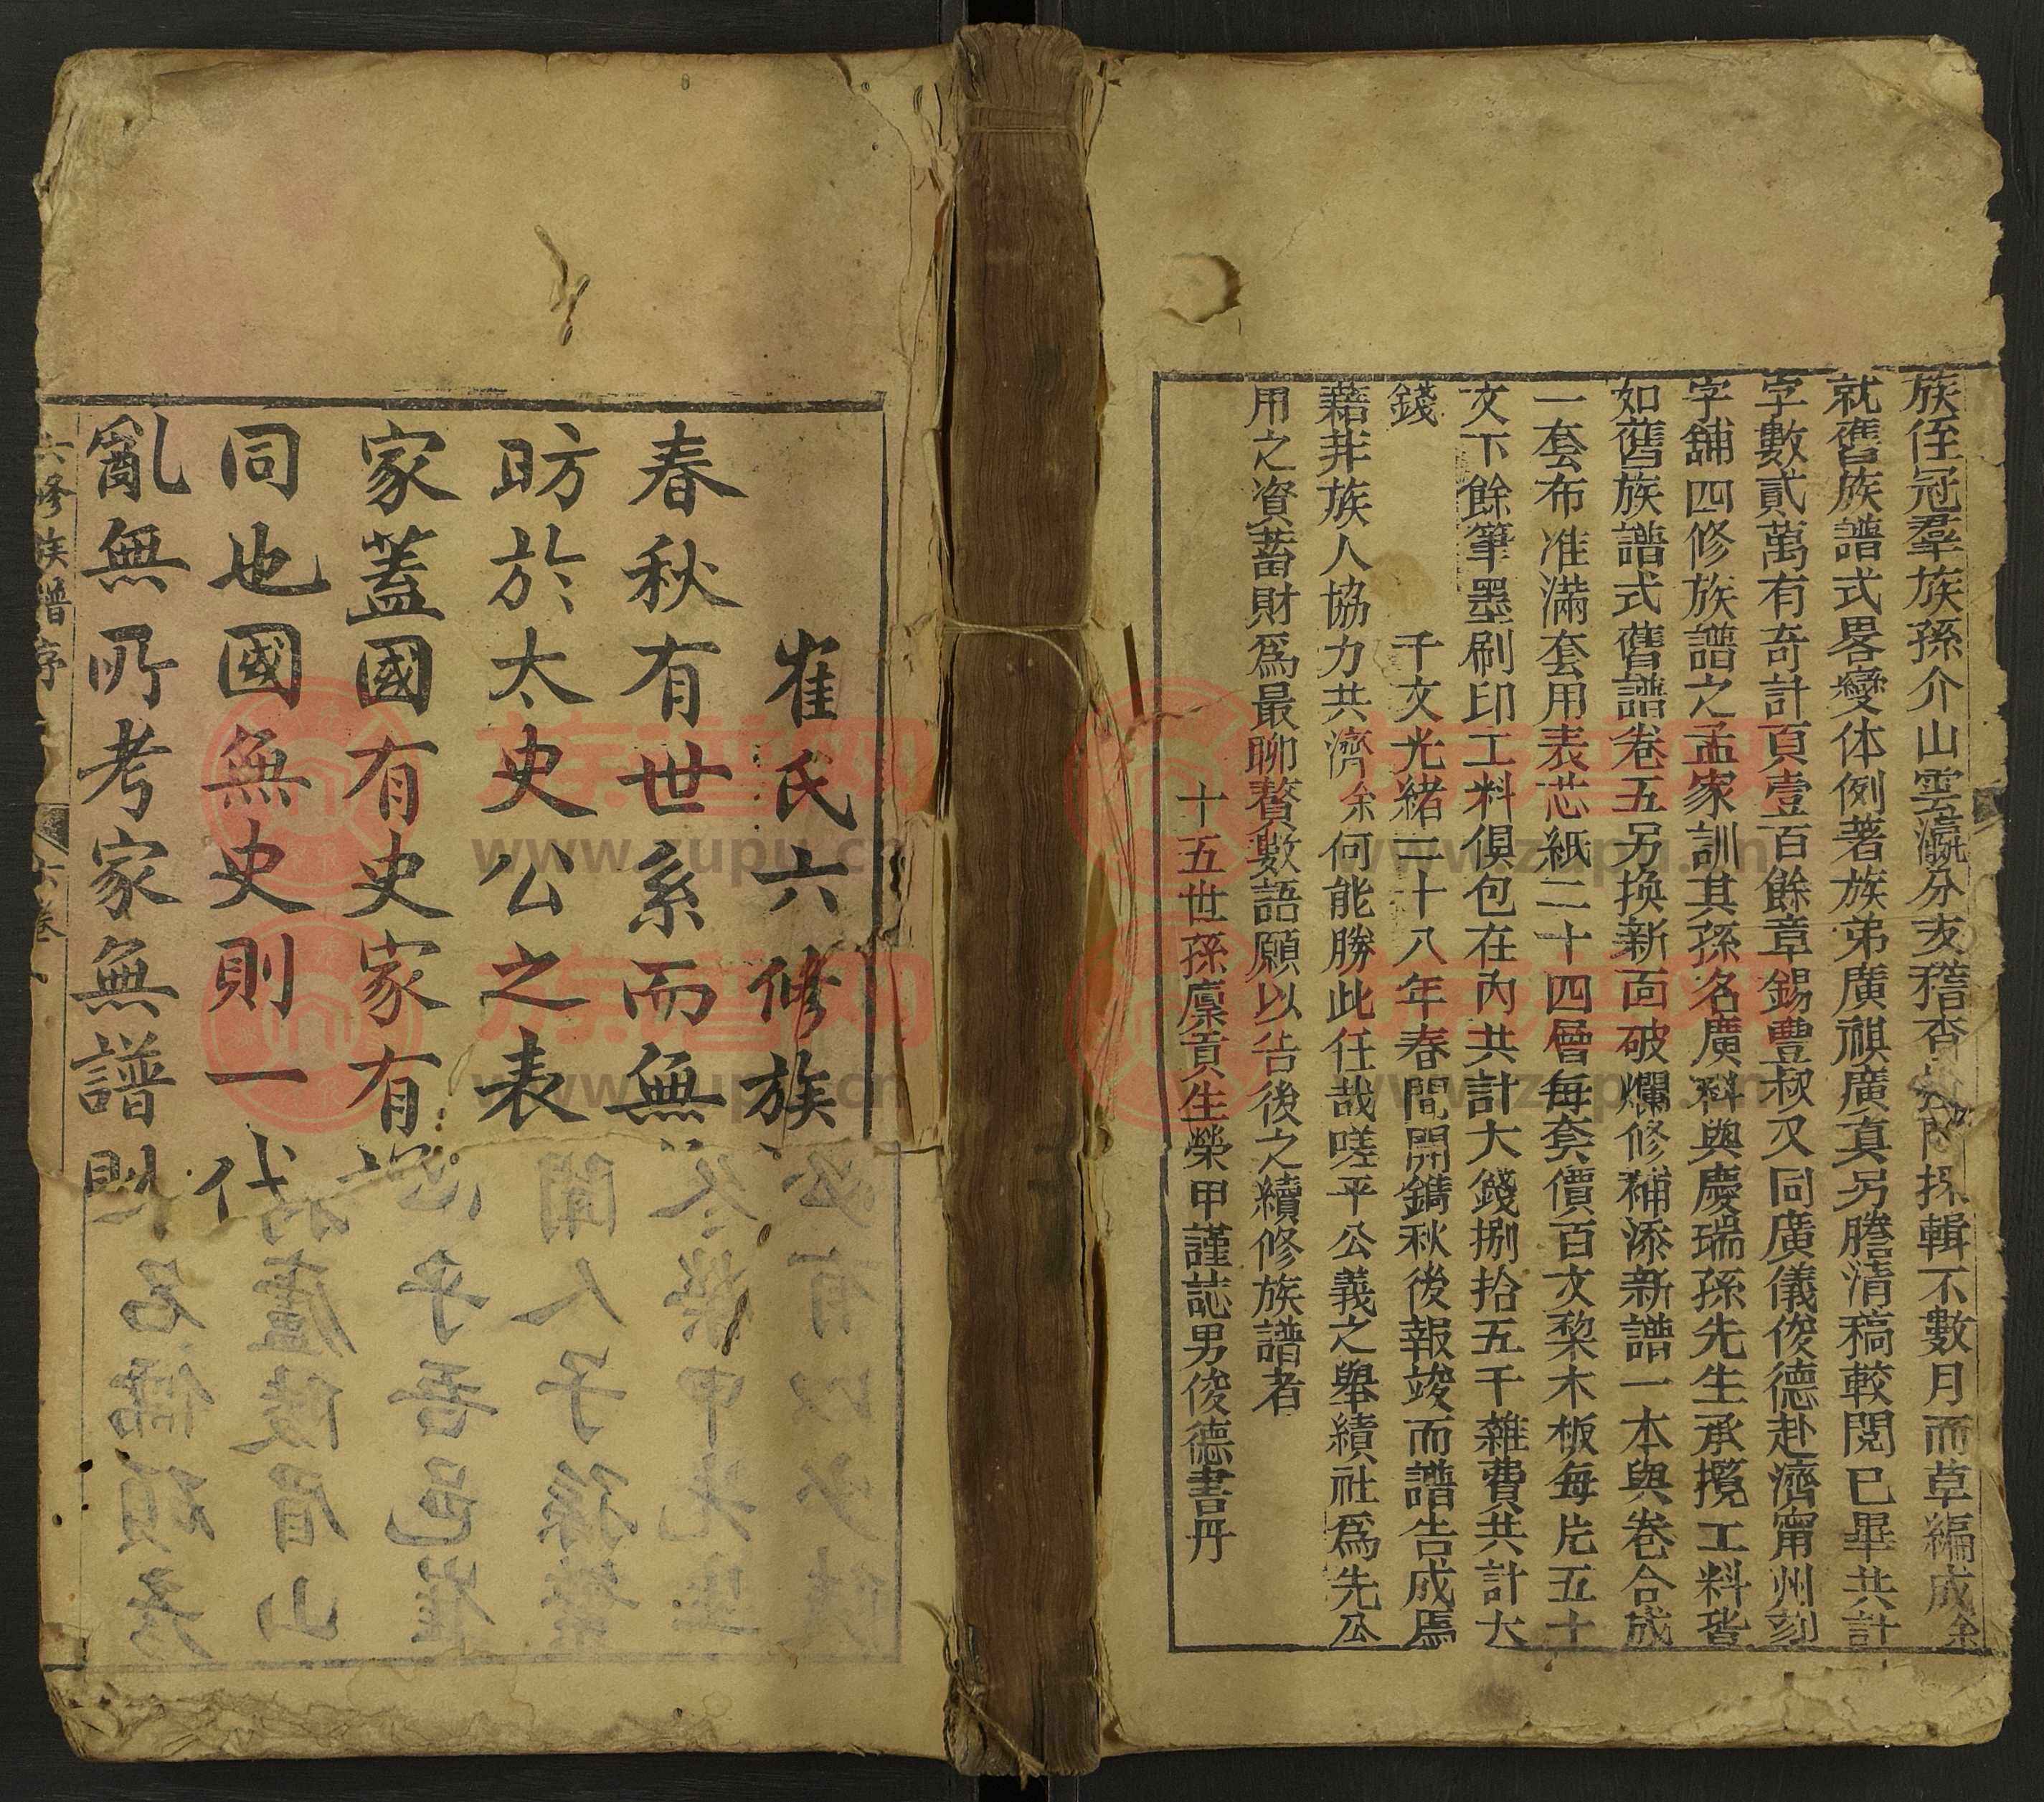 族侄冠羣族孫介山雲瀛分支稽查採輯不數月而草編成余
就舊族譜式畧變体例著族弟廣祺廣真另謄清稿較閱已畢共計
字數貳萬有奇計頁壹百餘章錫豐叔又同廣儀俊德赴濟甯州刻
字舖四修族譜之孟家訓其孫名廣科與慶瑞孫先生承攬工料皆
如舊族譜式舊譜卷五另換新面破爛修補添新譜一本與卷合成
一套布准滿套用表芯紙二十四層每套價百文棃木板每片五十
文下餘筆墨刷印工料俱包在內共計大錢捌拾五千雜費共計大
錢 千文光緒二十八年春間開鐫秋後報竣而譜告成焉
藉非族人協力共濟余何能勝此任哉嗟乎公義之舉績社為先公
用之資蓄財為最聊贅數語願以告後之續修族譜者
十五世孫廪貢生榮甲謹誌男俊德書丹
崔氏六修族
春秋有世系而無
昉於太史公之表
家蓋國有史家有
同也國無史則一代
亂無所考家無譜則
六修族譜序
六卷
必有以少陵
榮甲先生
聞人子孫蕃
乎吾邑崔
廬陵眉山
名儒碩彥
族譜网
www.zupu.cn
族譜网
www.zupu.cn
族譜网
www.zupu.cn
族譜网
www.zupu.cn